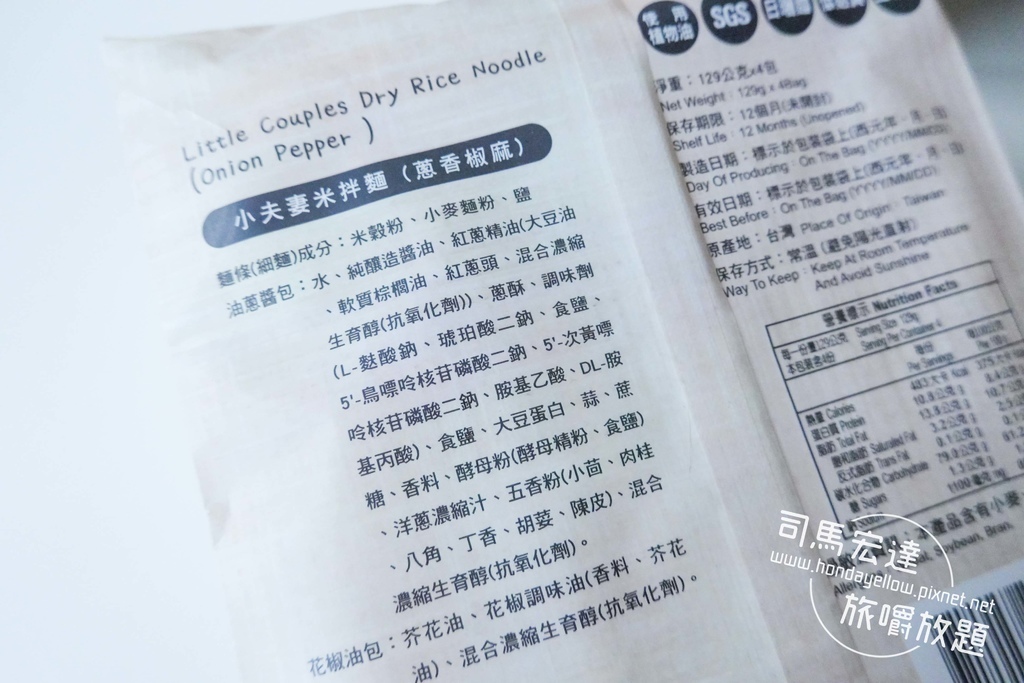 Little Couples Dry Rice Noodle
(Onion Pepper )
小夫妻米拌麵（蔥香椒麻）
麵條(細麵)成分：米穀粉、小麥麵粉、鹽
油蔥醬包：水、純釀造醬油、紅蔥精油(大豆油
、軟質棕櫚油、紅蔥頭、混合濃縮
生育醇(抗氧化劑))、蔥酥、調味劑
(L-麩酸鈉、琥珀酸二鈉、食鹽、
5'-鳥嘌呤核苷磷酸二鈉、5'-次黃嘌
呤核苷磷酸二鈉、胺基乙酸、DL-胺
基丙酸)、食鹽、大豆蛋白、蒜、蔗
糖、香料、酵母粉(酵母精粉、食鹽)
、洋蔥濃縮汁、五香粉(小茴、肉桂
、八角、丁香、胡荽、陳皮)、混合
濃縮生育醇(抗氧化劑)。
花椒油包：芥花油、花椒調味油(香料、芥花
油)、混合濃縮生育醇(抗氧化劑)。
使用
植物油
SGS
淨重：129公克x4包
Net Weight：129g x 4Bag
保存期限：12個月(未開封)
Shelf Life：12 Months (Unopened)
製造日期：標示於包裝袋上(西元年．月．日)
Day Of Producing：On The Bag (YYYY/MM/DD)
有效日期：標示於包裝袋上(西元年．月．日)
Best Before：On The Bag (YYYY/MM/DD)
原產地：台灣 Place Of Origin：Taiwan
保存方式：常溫 (避免陽光直射)
Way To Keep：Keep At Room Temperature
And Avoid Sunshine
營養標示 Nutrition Facts
每一份量129公克 Serving Size 129g
本包裝含4份 Serving Per Container 4
每份
Per Serving
熱量 Calories
蛋白質 Protein
脂肪 Total Fat
飽和脂肪 Saturated Fat
反式脂肪 Trans Fat
碳水化合物 Carbohydrate
糖 Sugars
司馬宏達
www.hondayellow.pixnet.net
旅嚼放題